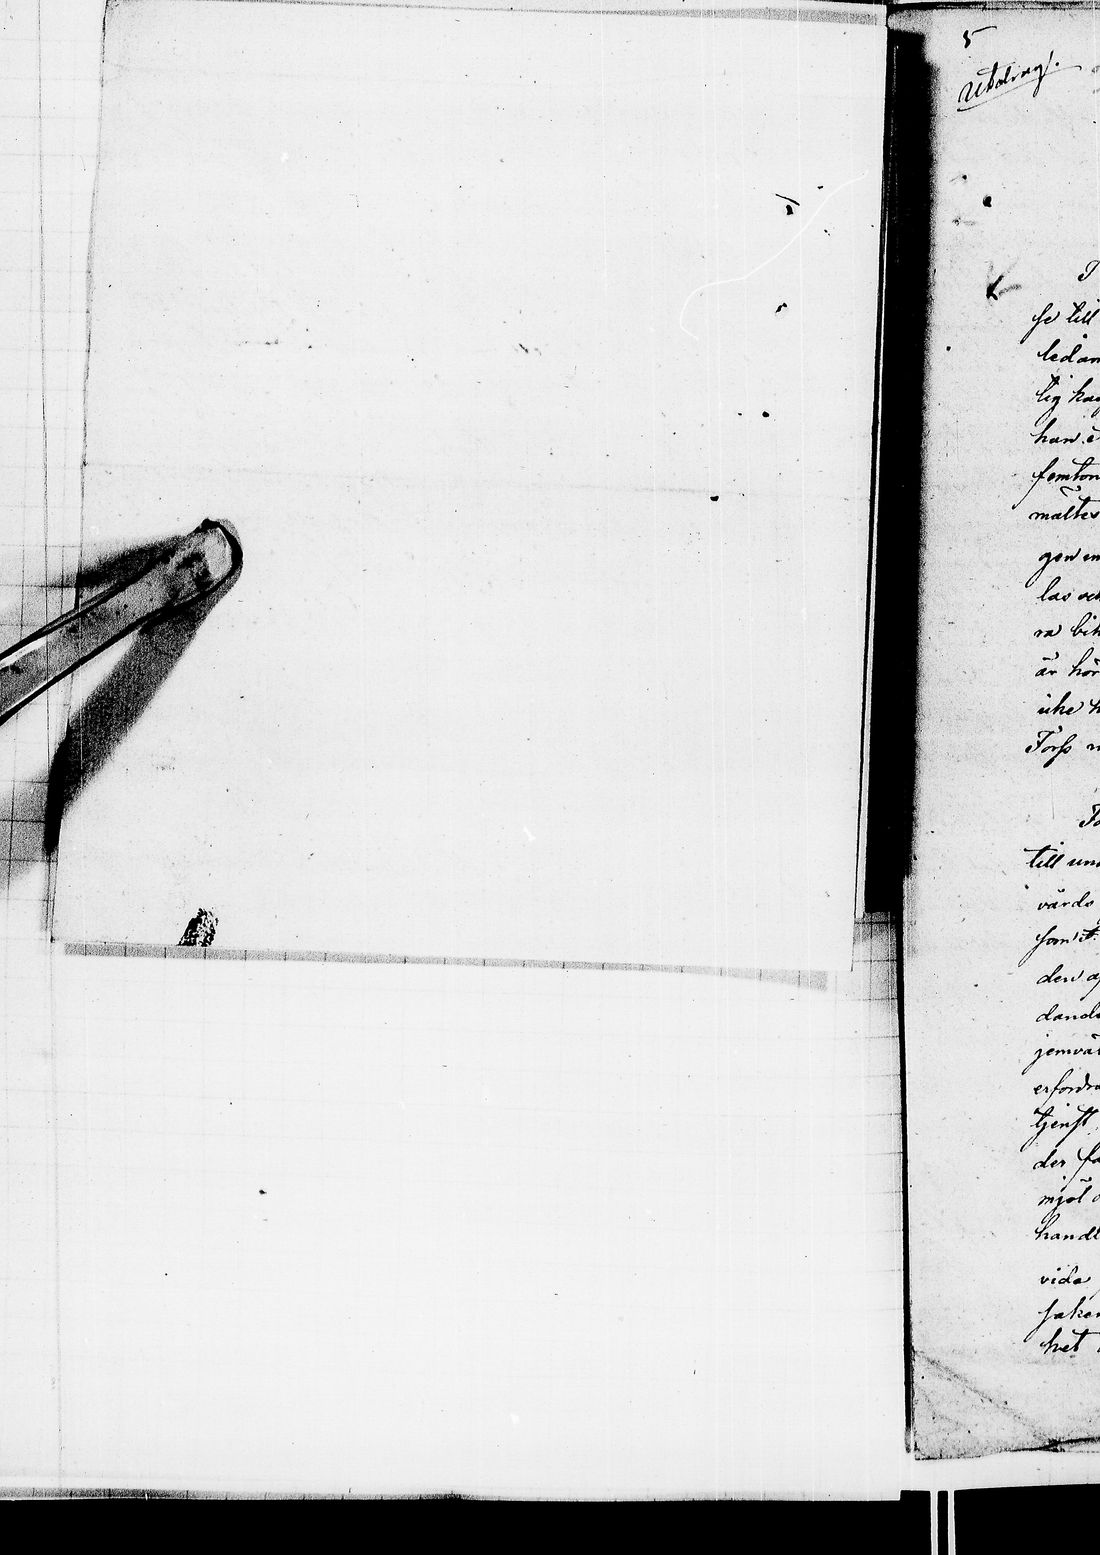 5
Utdrag
T
se till
ledam
lig kag
han e
femton
mältes
gen en
las och
ra bit
är hör
icke k
Forss n
To
till und
värds
som t.
den af
dande
jemväl
erfordra
tjenst
der fa
mjöl o
handl
vida
saken
het